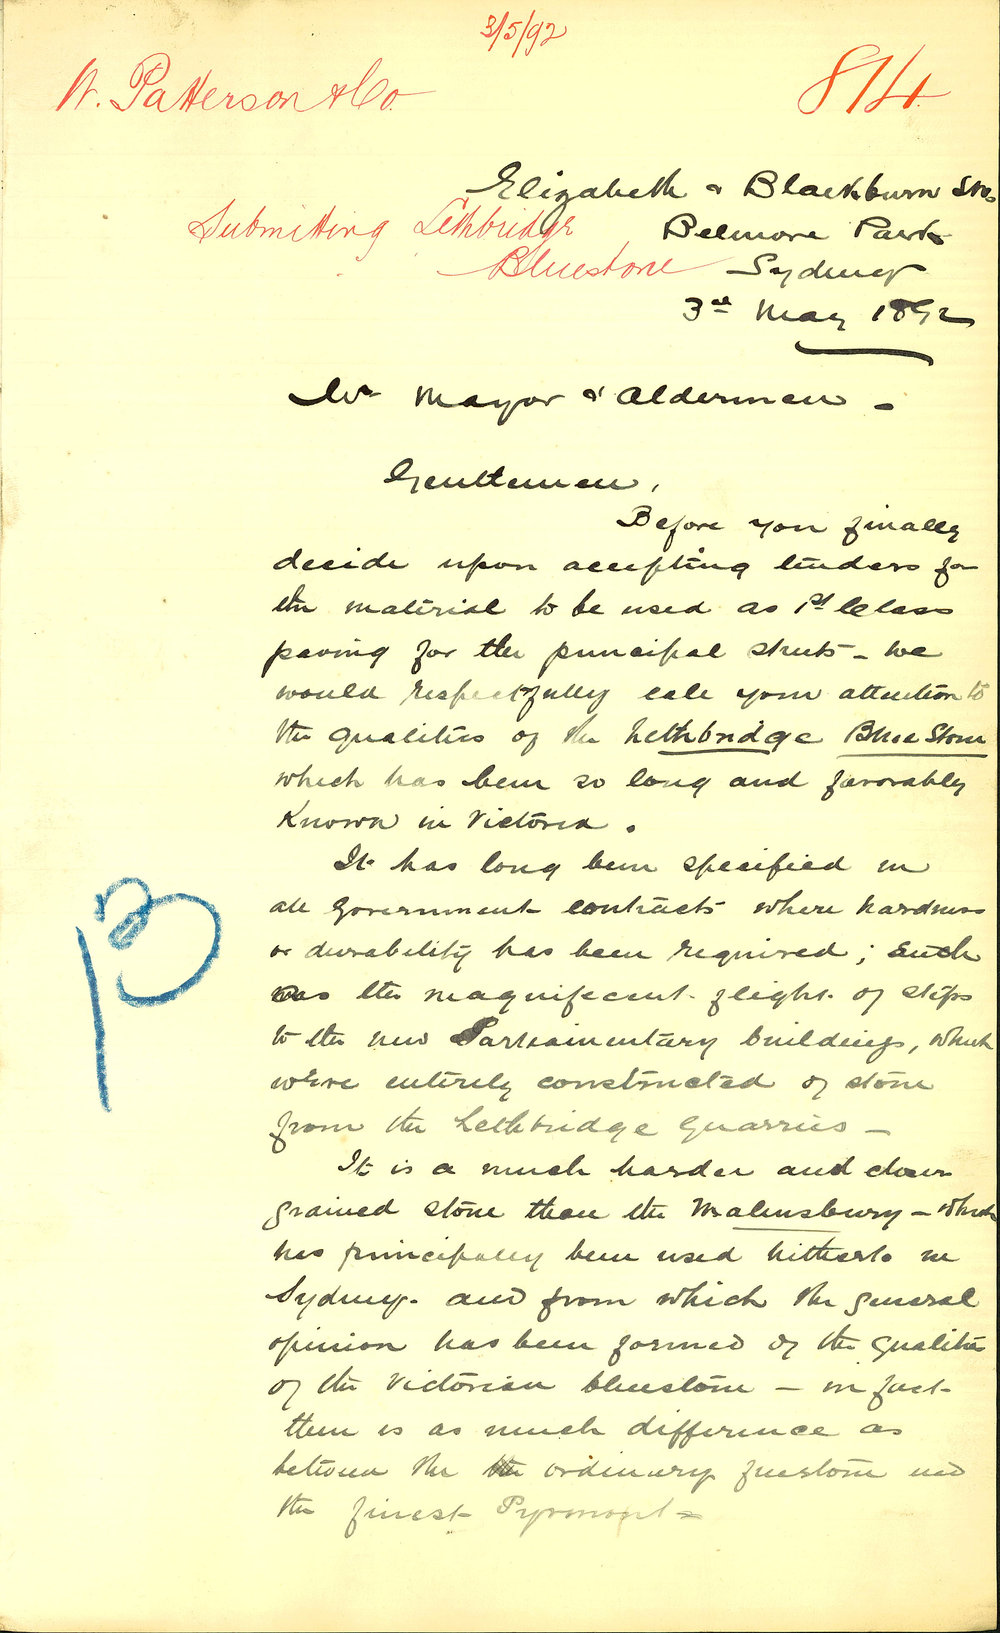 3/5/92
W. Patterson & Co.
814
Elizabeth & Blackburn Sts
Submitting Lethbridge
Belmore Park
Bluestone
Sydney
3rd May 1892
Mayor & Aldermen -
Gentlemen,
Before you finally
decide upon accepting tenders for
the material to be used as 1st Class
paving for the principal streets - we
would respectfully call your attention to
the qualities of the Lethbridge Blue Stone
which has been so long and favorably
Known in Victoria.
It has long been specified in
all Government contracts where hardness
or durability has been required; Such
was the magnificent flight of steps
to the new Parliamentary buildings, which
were entirely constructed of stone
from the Lethbridge Quarries -
It is a much harder and closer
grained stone than the Malmsbury - which
has principally been used hitherto in
Sydney. and from which the general
opinion has been formed of the qualities
of the Victorian bluestone - in fact
there is as much difference as
between the the ordinary freestone and
the finest Pyrmont -